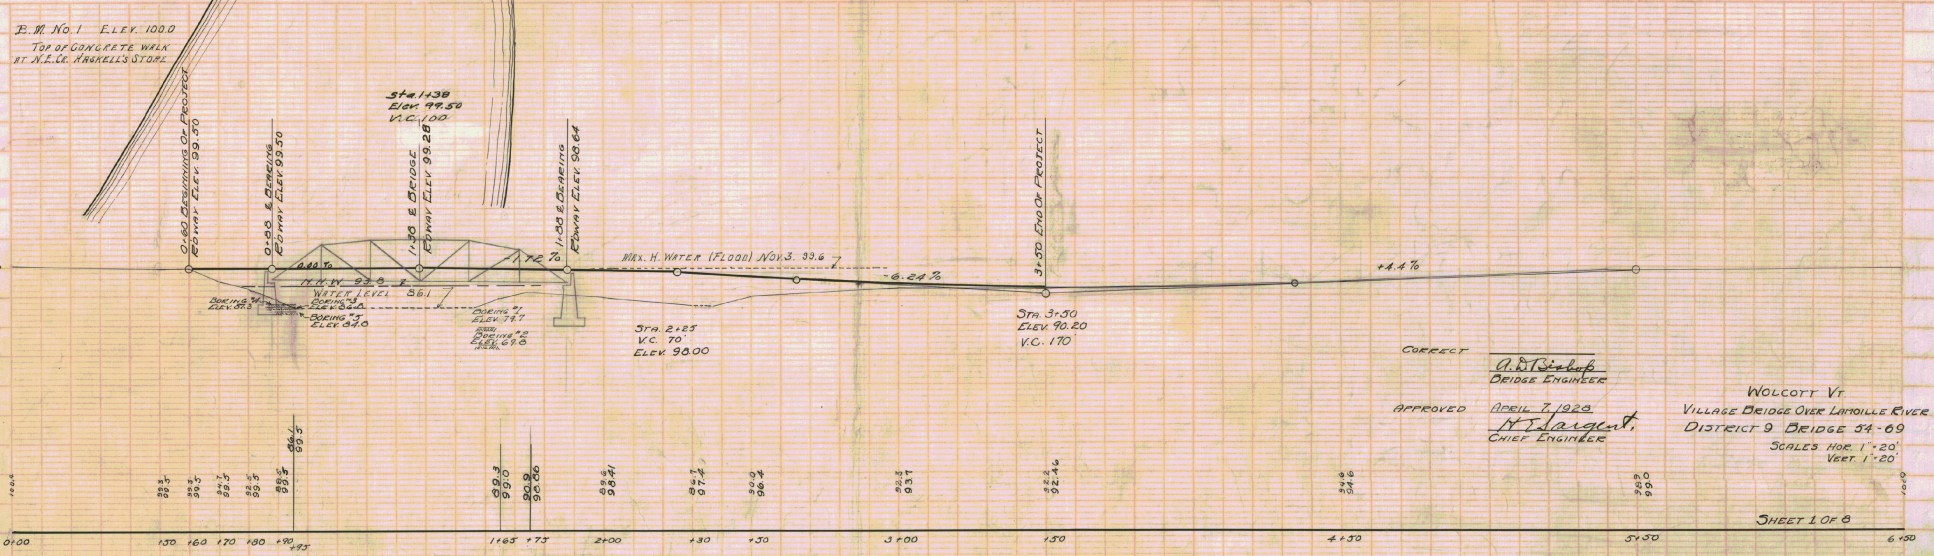 B.M. No. 1 ELEV. 100.0
TOP OF CONCRETE WALK
AT N.E. CR. HASKELL'S STORE
0+60 BEGINNING OF PROJECT
RDWAY ELEV. 99.50
0+88 ℄ BEARING
RDWAY ELEV. 99.50
Sta. 1+38
Elev. 99.50
V.C. 100
1+38 ℄ BRIDGE
RDWAY ELEV 99.28
1+88 ℄ BEARING
RDWAY ELEV. 98.64
3+50 END OF PROJECT
0.00 %
-1.72 %
MAX. H. WATER (FLOOD) NOV. 3. 99.6
-6.24 %
+4.4 %
N.H.W. 93.8
WATER LEVEL 86.1
BORING #4
ELEV. 87.3
BORING #3
ELEV. 86.8
BORING #5
ELEV. 84.8
BORING #1
ELEV. 79.7
BORING #2
ELEV. 69.8
STA. 2+25
V.C. 70'
ELEV. 98.00
STA. 3+50
ELEV. 90.20
V.C. 170
CORRECT
A. D. Bishop
BRIDGE ENGINEER
APPROVED APRIL 7, 1928
H E Sargent.
CHIEF ENGINEER
WOLCOTT VT
VILLAGE BRIDGE OVER LAMOILLE RIVER
DISTRICT 9 BRIDGE 54-69
SCALES HOR. 1"=20'
VERT. 1"=20'
99.5
99.5
99.5
99.5
99.5
86.1
99.5
89.3
99.0
90.9
98.86
98.41
97.4
96.4
93.7
92.46
94.6
99.0
SHEET 1 OF 8
0+00 +50 +60 +70 +80 +90 +95 1+65 +75 2+00 +30 +50 3+00 +50 4+50 5+50 6+50